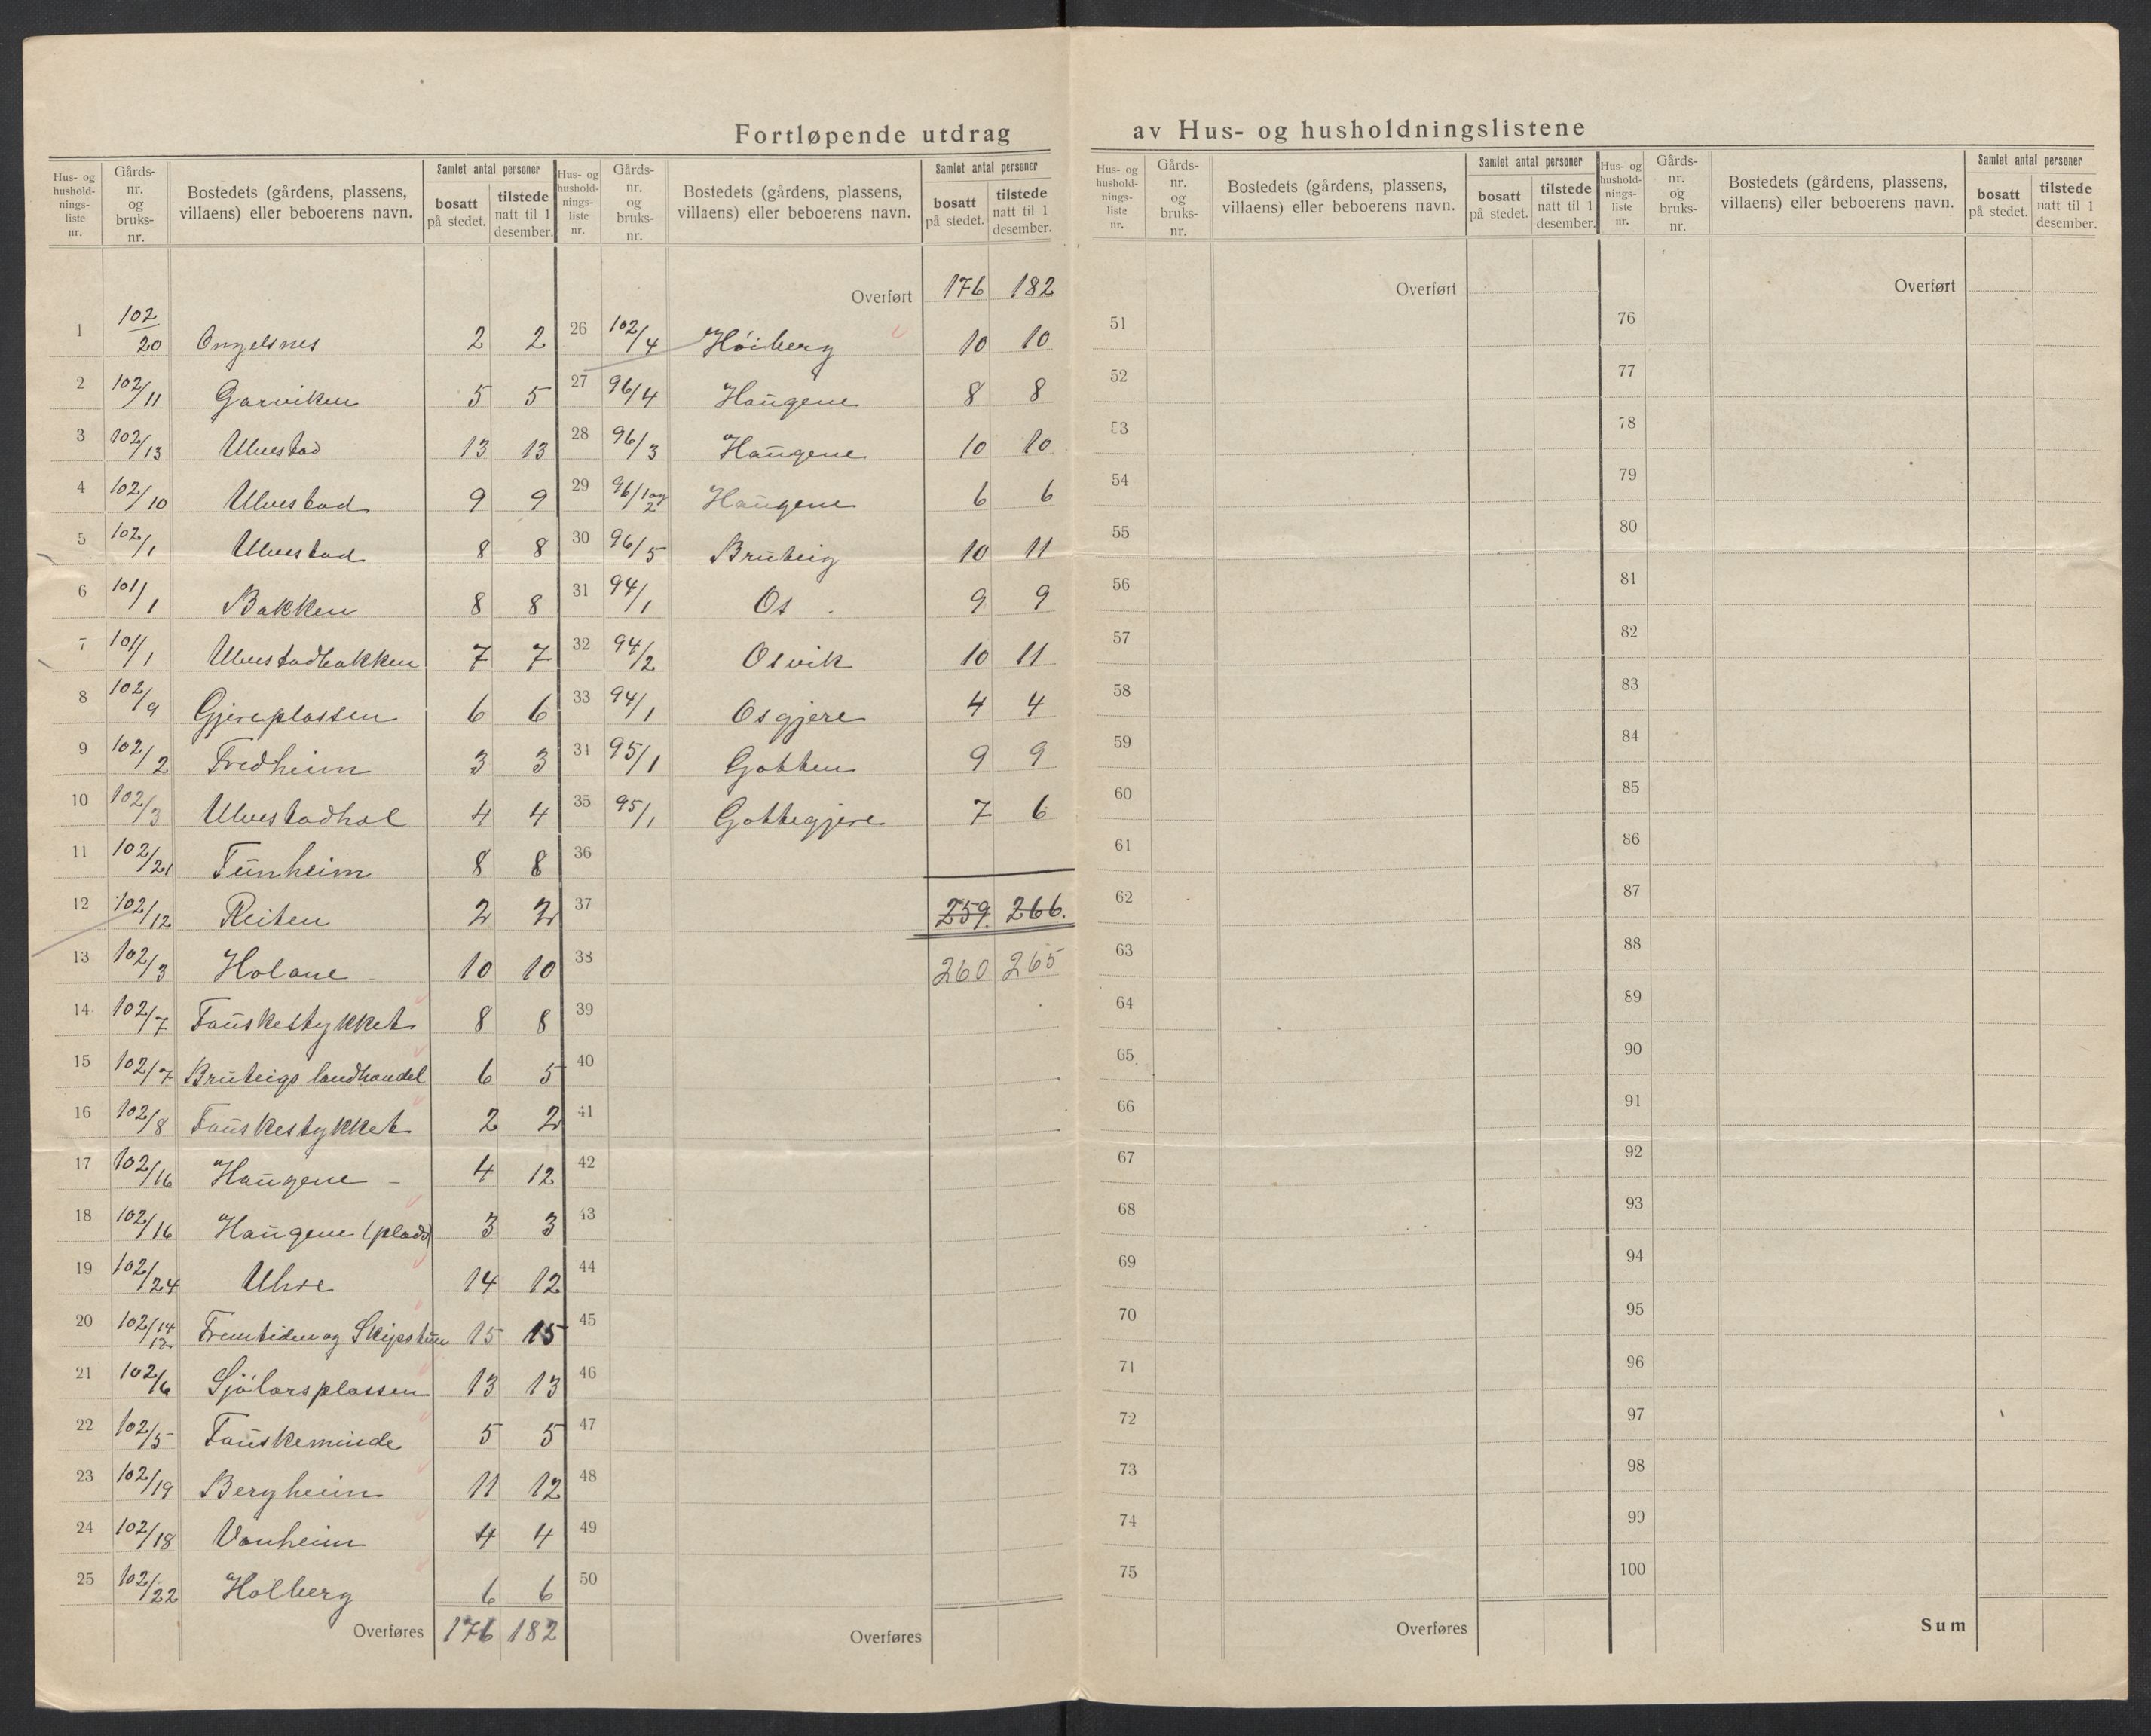 Fortløpende utdrag av Hus- og husholdningslistene
Hus- og hushold- nings- liste nr.
Gårds- nr. og bruks- nr.
Bostedets (gårdens, plassens, villaens) eller beboerens navn.
Samlet antal personer
bosatt på stedet.
tilstede natt til 1 desember.
1 102/20 Ongelsnes 2 2
2 102/11 Garviken 5 5
3 102/13 Ulvestad 13 13
4 102/10 Ulvestad 9 9
5 102/1 Ulvestad 8 8
6 101/1 Bakken 8 8
7 101/1 Ulvestadbakken 7 7
8 102/9 Gjereplassen 6 6
9 102/2 Fredheim 3 3
10 102/3 Ulvestadhol 4 4
11 102/21 Tunheim 8 8
12 102/12 Reiten 2 2
13 102/3 Holane 10 10
14 102/7 Fauskestykket 8 8
15 102/7 Bruteigs landhandel 6 5
16 102/8 Fauskestykket 2 2
17 102/16 Haugene 4 12
18 102/16 Haugene (plads) 3 3
19 102/24 Uhre 14 12
20 102/14 12 Fremtiden og Skipstun 15 15
21 102/6 Sjölarsplassen 13 13
22 102/5 Fauskeminde 5 5
23 102/19 Bergheim 11 12
24 102/18 Vonheim 4 4
25 102/22 Holberg 6 6
Overføres 176 182
Hus- og hushold- nings- liste nr.
Gårds- nr. og bruks- nr.
Bostedets (gårdens, plassens, villaens) eller beboerens navn.
Samlet antal personer
bosatt på stedet.
tilstede natt til 1 desember.
Overført 176 182
26 102/4 Höiberg 10 10
27 96/4 Haugene 8 8
28 96/3 Haugene 10 10
29 96/1 og 2 Haugene 6 6
30 96/5 Bruteig 10 11
31 94/1 Os 9 9
32 94/2 Osvik 10 11
33 94/1 Osgjere 4 4
34 95/1 Gotten 9 9
35 95/1 Gottegjere 7 6
36
37 259. 266.
38 260 265
39
40
41
42
43
44
45
46
47
48
49
50
Overføres
Hus- og hushold- nings- liste nr.
Gårds- nr. og bruks- nr.
Bostedets (gårdens, plassens, villaens) eller beboerens navn.
Samlet antal personer
bosatt på stedet.
tilstede natt til 1 desember.
Overført
51
52
53
54
55
56
57
58
59
60
61
62
63
64
65
66
67
68
69
70
71
72
73
74
75
Overføres
Hus- og hushold- nings- liste nr.
Gårds- nr. og bruks- nr.
Bostedets (gårdens, plassens, villaens) eller beboerens navn.
Samlet antal personer
bosatt på stedet.
tilstede natt til 1 desember.
Overført
76
77
78
79
80
81
82
83
84
85
86
87
88
89
90
91
92
93
94
95
96
97
98
99
100
Sum